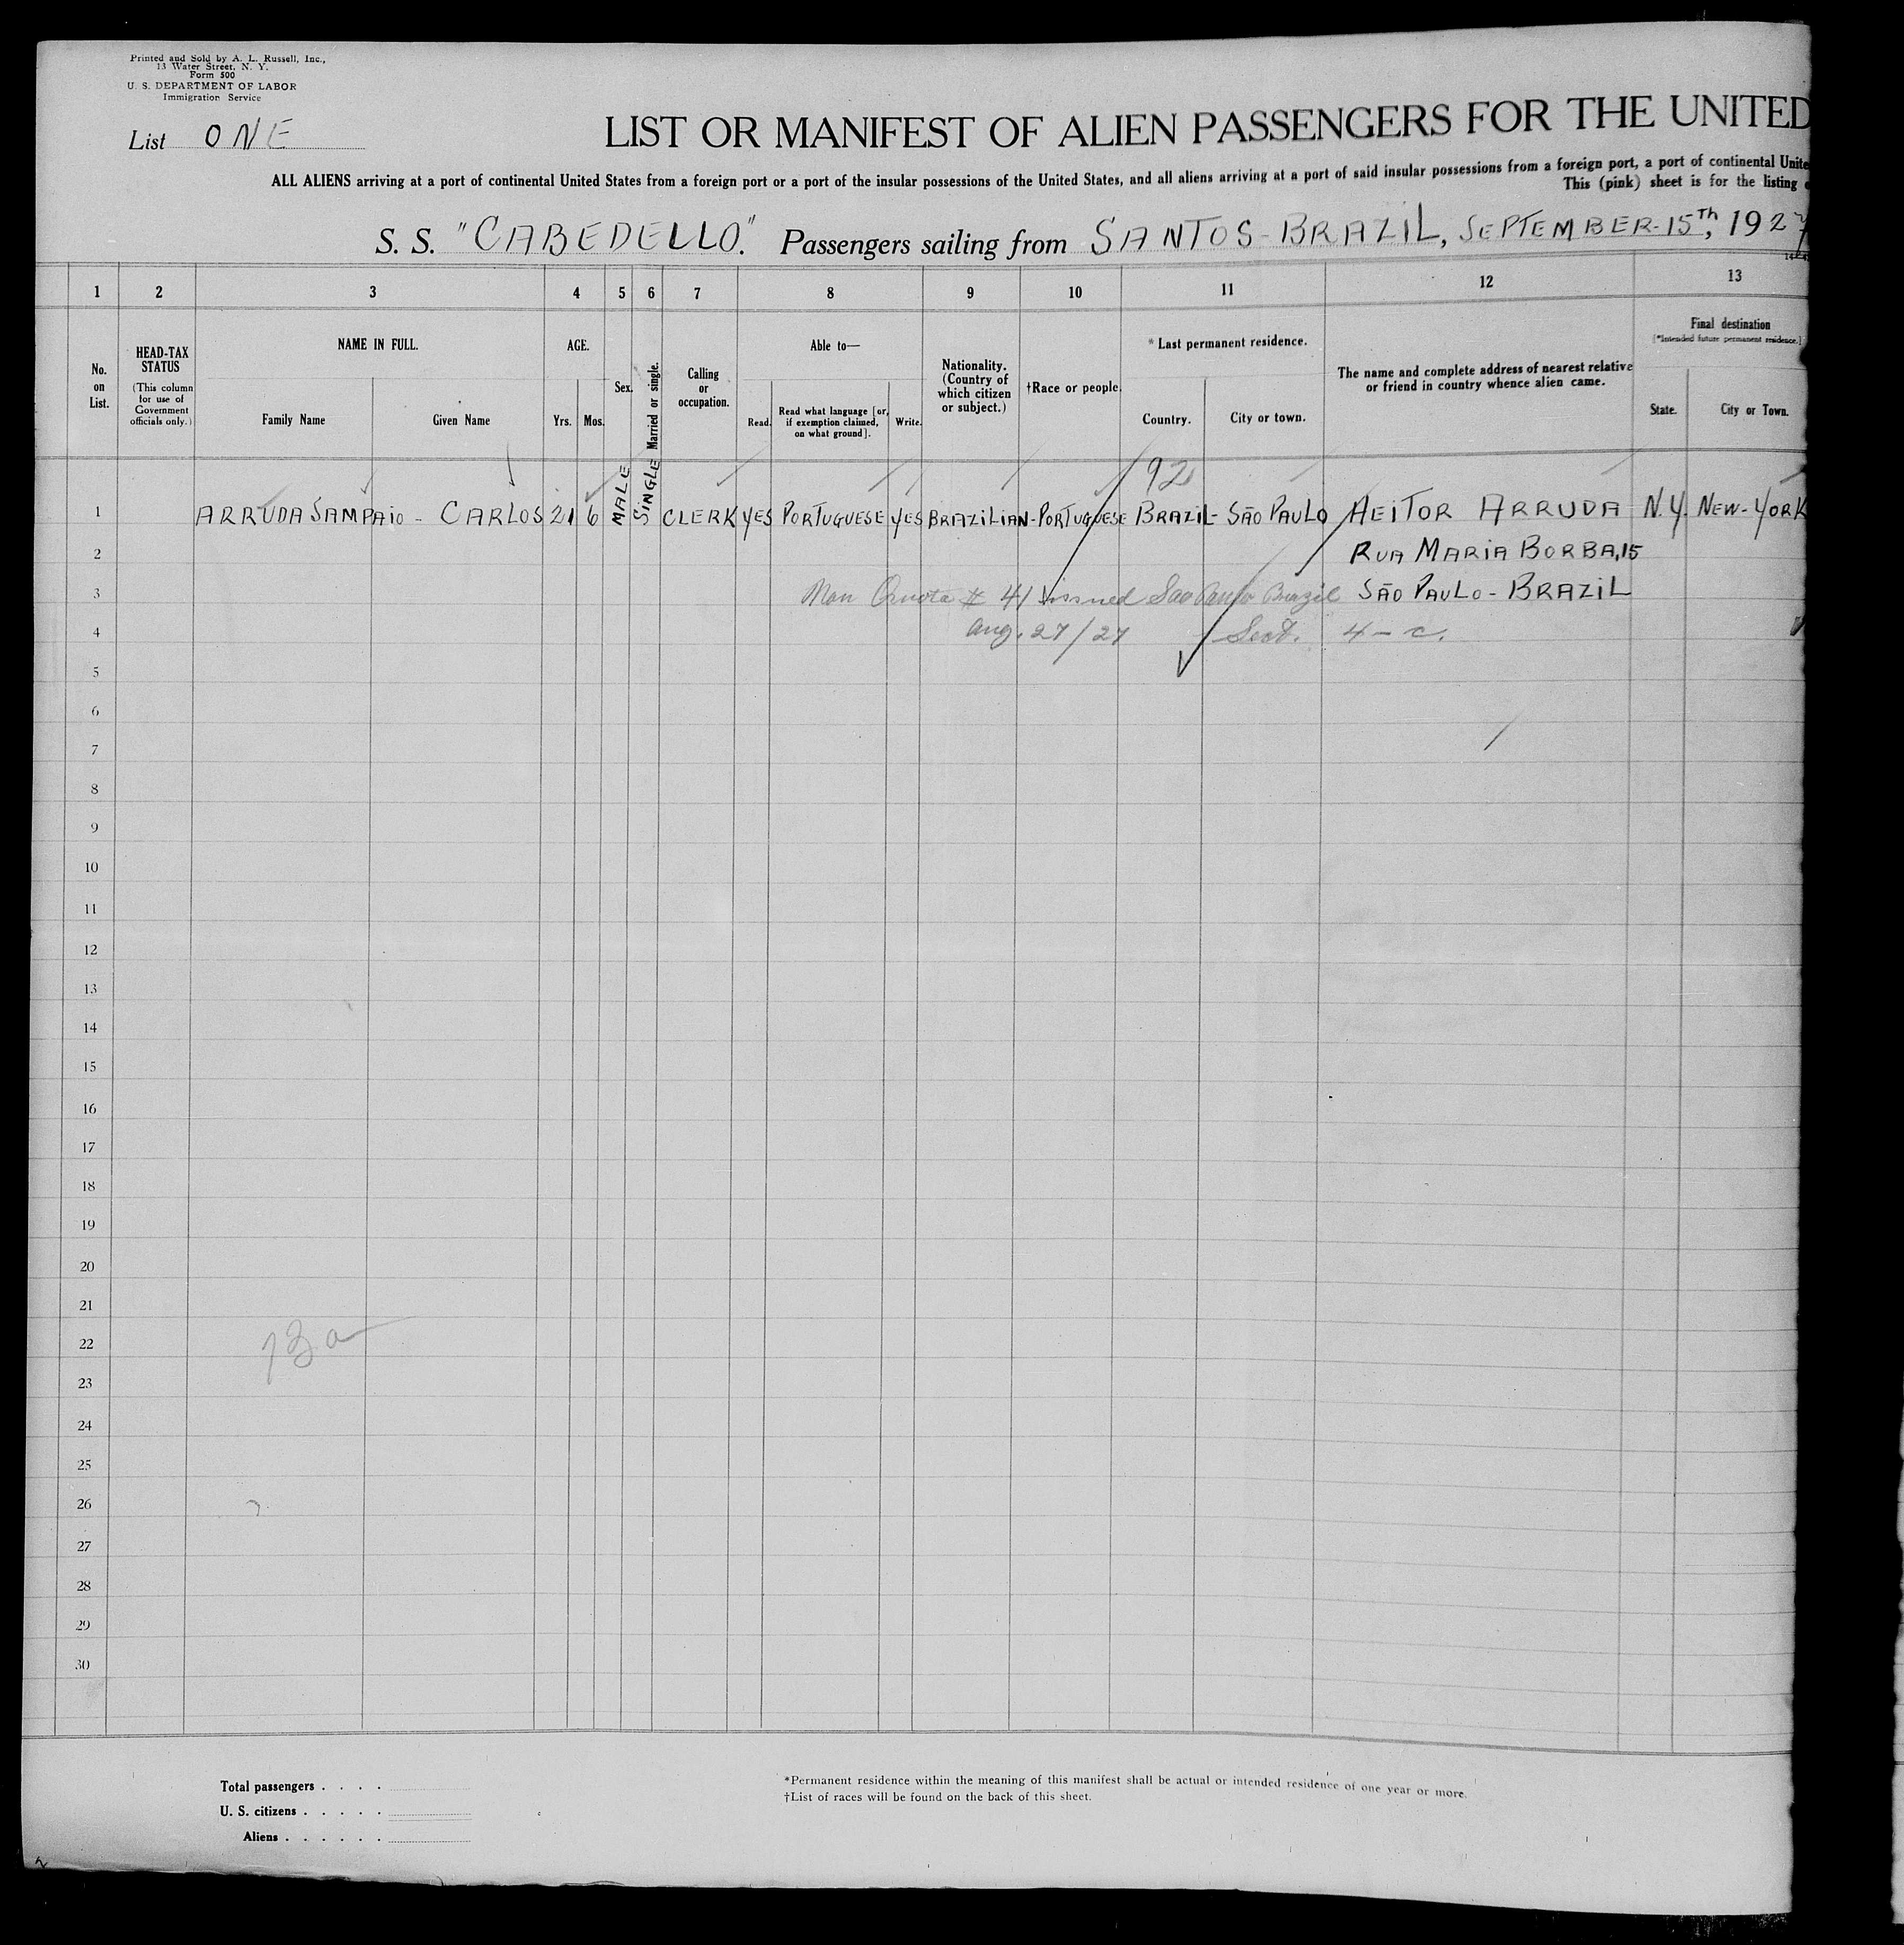 Printed and Sold by A. L. Russell, Inc.,
13 Water Street, N. Y.
Form 500
U. S. DEPARTMENT OF LABOR
Immigration Service
List ONE
LIST OR MANIFEST OF ALIEN PASSENGERS FOR THE UNITED
ALL ALIENS arriving at a port of continental United States from a foreign port or a port of the insular possessions of the United States, and all aliens arriving at a port of said insular possessions from a foreign port, a port of continental Unite
This (pink) sheet is for the listing
S. S. "CABEDELLO." Passengers sailing from SANTOS-BRAZIL, SEPTEMBER-15TH, 1927
1 2 3 4 5 6 7 8 9 10 11 12 13
No. on List.
HEAD-TAX STATUS
(This column for use of Government officials only.)
NAME IN FULL.
Family Name
Given Name
AGE.
Yrs.
Mos.
Sex.
Married or single.
Calling or occupation.
Able to—
Read.
Read what language [or, if exemption claimed, on what ground].
Write.
Nationality. (Country of which citizen or subject.)
†Race or people.
* Last permanent residence.
Country.
City or town.
The name and complete address of nearest relative or friend in country whence alien came.
Final destination
[*Intended future permanent residence.]
State.
City or Town.
92
1 ARRUDA SAMPAIO - CARLOS 21 6 MALE SINGLE CLERK YES PORTUGUESE YES BRAZILIAN-PORTUGUESE BRAZIL- SÃO PAULO HEITOR ARRUDA N.Y. NEW-YORK
2 RUA MARIA BORBA,15
3 Non Quota # 41 issued Sao Paulo Brazil SÃO PAULO - BRAZIL
4 Aug. 27/27 Sect. 4 - c.
5
6
7
8
9
10
11
12
13
14
15
16
17
18
19
20
21
22
23
24
25
26
27
28
29
30
Total passengers . . . .
U. S. citizens . . . . .
Aliens . . . . . .
*Permanent residence within the meaning of this manifest shall be actual or intended residence of one year or more.
†List of races will be found on the back of this sheet.